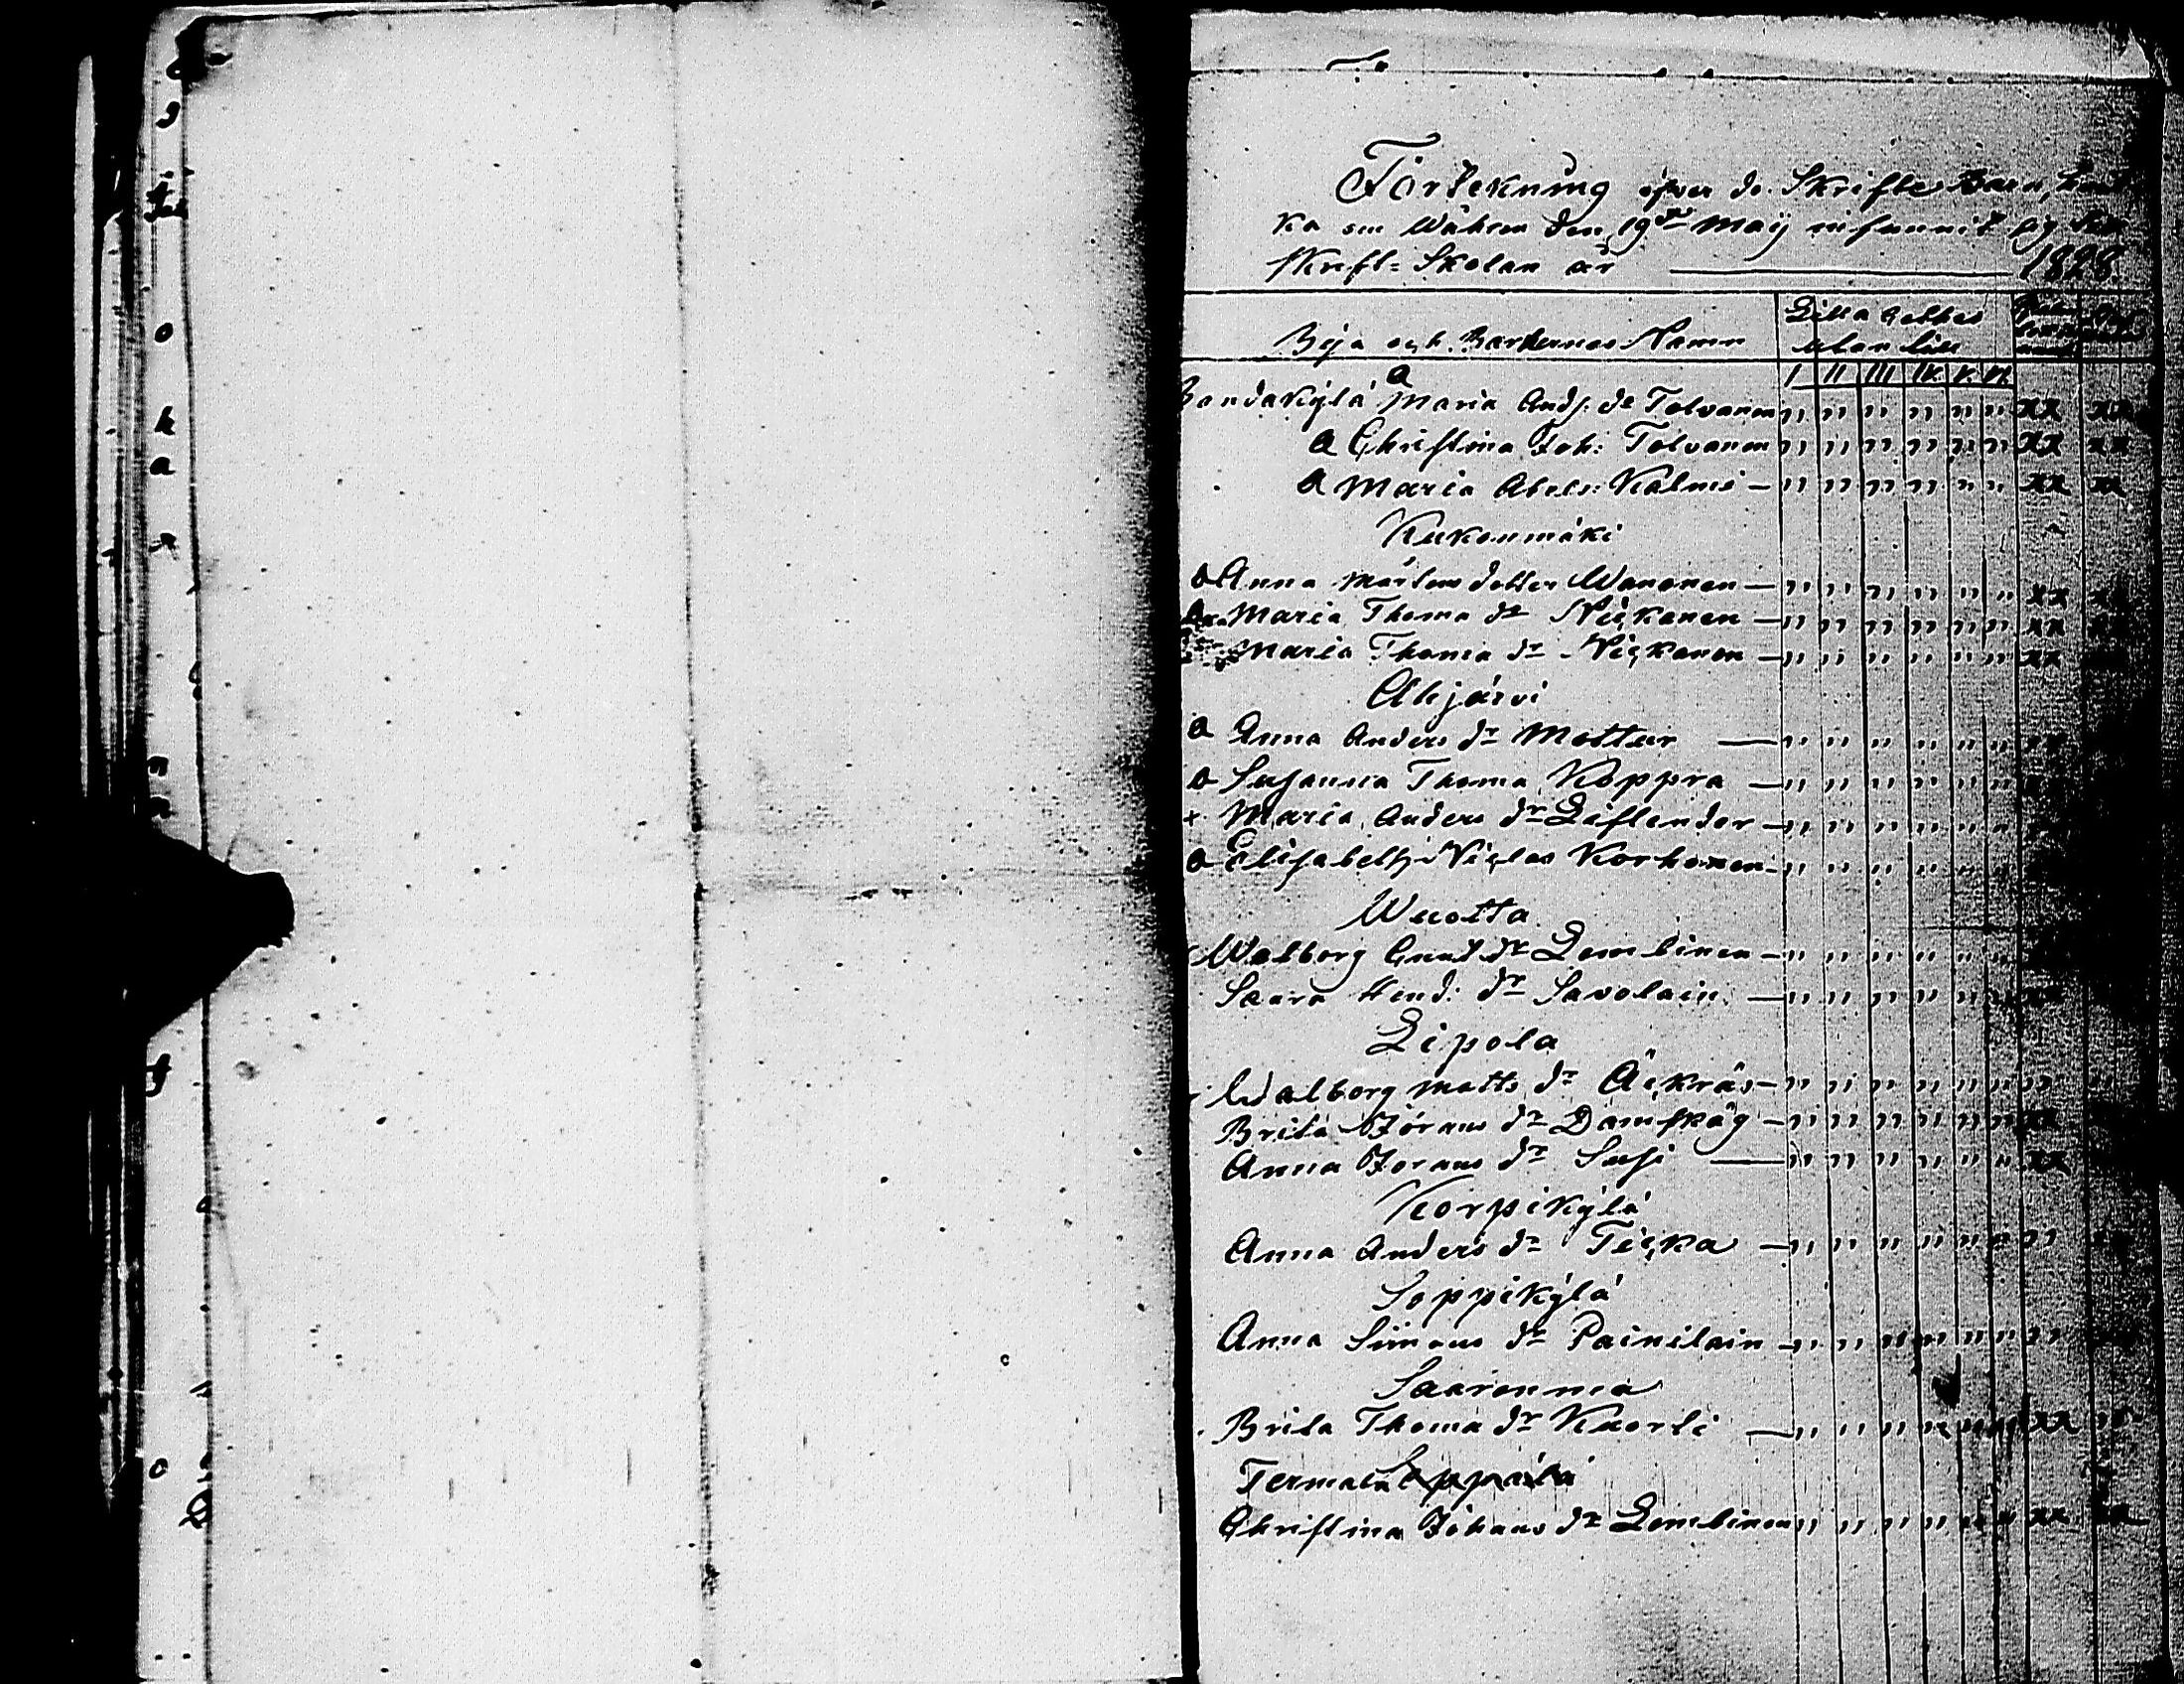 Förtekning öfver de Skrifte Barn, hvil
ka sin Wåhren den 19de Maij infunnit sig
Skrift=Skolan år 1828
Byja och Barnernas Namn
Lilla Cathes
utan
I II III IV. V. VI.
a
Bondakÿlä Maria Ands: dr Tolvanen " " " " " " xx xx
a Christina Joh: Tolvanen " " " " " " xx xx
a Maria Abels: Kälmi — " " " " " " xx xx
Kukonmäki
a Anna Mårtens dotter Wananen — " " " " " " xx
Maria Thoma dr Nickanen — " " " " " " xx
Maria Thoma dr Nickanen — " " " " " " xx
Ahjärvi
a Anna Anders dr Mottur — " " " " " "
a Susanna Thoma Koppra — " " " " " "
x Maria Anders dr Liflender — " " " " " "
a Elisabeth Niclas Korhonen — " " " " " "
Wuotta
Walborg Knut dr Lemlinen — " " " " " "
Saara Hend: dr Savolain — " " " " " "
Lipola
Walborg Matts dr Äckräs — " " " " " " "
Brita Jörans dr Damskäg — " " " " " " xx
Anna Jörans dr Susi — " " " " " " xx
Korpikÿlä
Anna Anders dr Ticka — " " " " " " "
Soppikÿlä
Anna Simons dr Painilain — " " " " " " "
Saarenma
Brita Thoma dr Kuorti — " " " " " " xx
Termala
Christina Johans dr Lemlinen " " " " " " xx xx